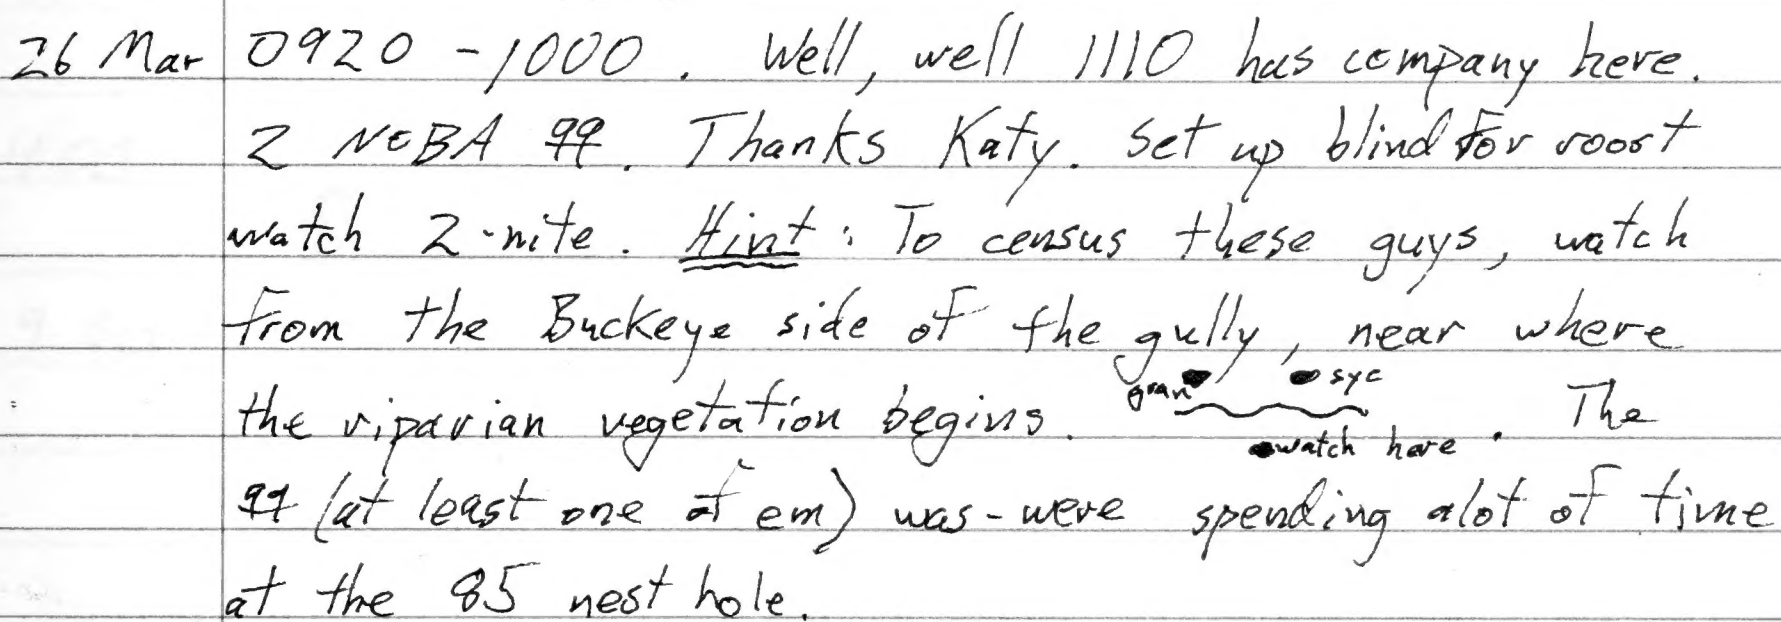 26 Mar 0920 - 1000. Well, well 1110 has company here.
2 NOBA ♀♀. Thanks Katy. Set up blind for roost
watch 2-nite. Hint: To census these guys, watch
from the Buckeye side of the gully, near where
gran syc
the riparian vegetation begins. . The
watch here
♀♀ (at least one of em) was-were spending alot of time
at the 85 nest hole.